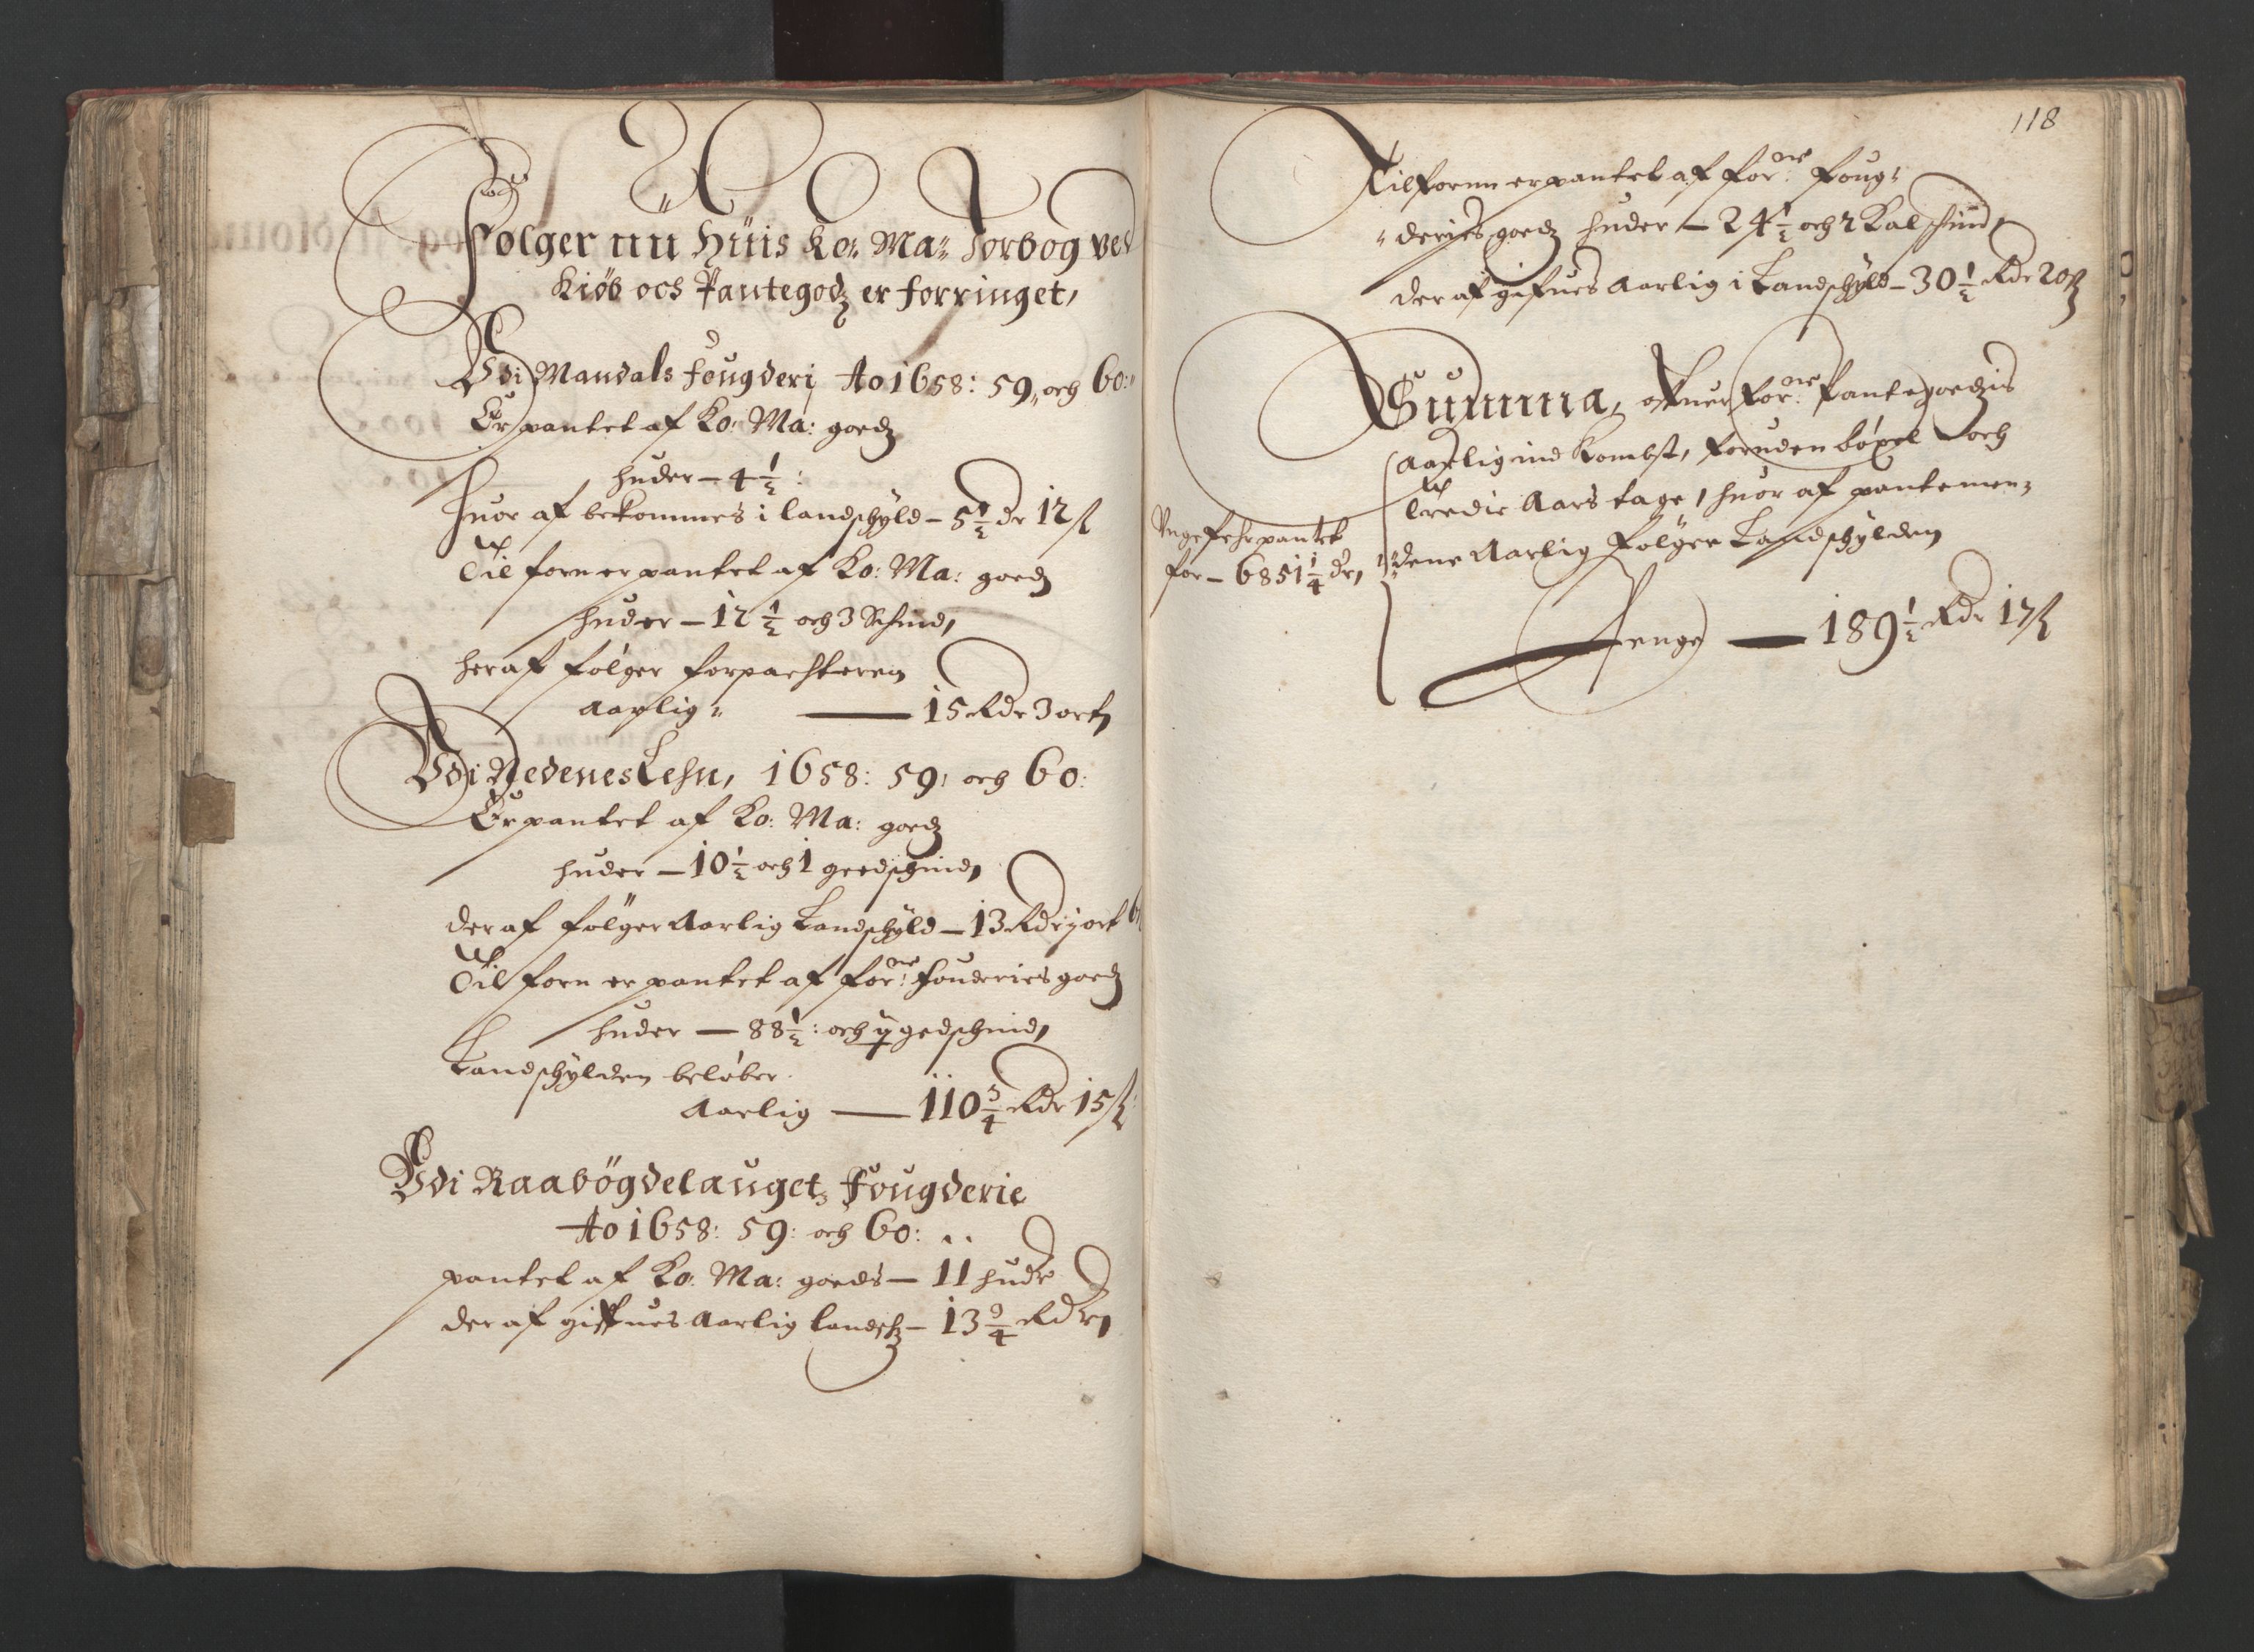 Følger nu Huis Ko: Ma: Jorbog ved
Kiøb och Pantegodz er forringet,
Udi Mandals fougderi Ao 1658: 59, och 60:
Er pantet af Ko: Ma: goedz
huder – 4 1/2 :
Huor af bekommes i landschyld – 5 1/2 dr 12 ß
Til forn er pantet af Ko: Ma: goedz
huder – 12 1/2 och 3 Schind,
her af følger forpachteren
Aarlig – 15 Rdr 3 ort,
Udi Nedenes Lehn, 1658: 59, och 60:
Er pantet af Ko: Ma: goedz
huder – 10 1/2 och 1 geedschind,
der af følger Aarlig Landschyld – 13 Rdr j ort 6
Til forn er pantet af for:ne fouderies goedz
huder – 88 1/2 : och gedschind,
Landschylden beløber
Aarlig – 110 3/4 Rdr 15 ß
Udi Raabøgdelauget, Fougderie
Ao 1658: 59: och 60:
pantet af Ko: Ma: goeds – 11 hudr
der af giffues Aarlig landsch – 13 3/4 Rdr,
118
Tilfornn er pantet af for:ne foug-
deries goedz huder – 24 1/2 och 2 Kalschind,
der af gifues Aarlig i Landschyld – 30 1/2 Rdr 20 ß
Summa, offuer for:ne Pantegoedzis
Aarlig ind Kombst, foruden bøxel och
tredie Aars tage, huor af pantemen-
dene Aarlig følger Landschylden
Penge – 189 1/2 Rdr 17 ß
Ungefehr pantet
for – 6851 1/4 dr,